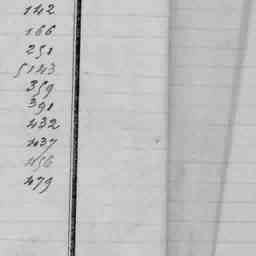 142
166
251
5143
359
391
432
437
456
479